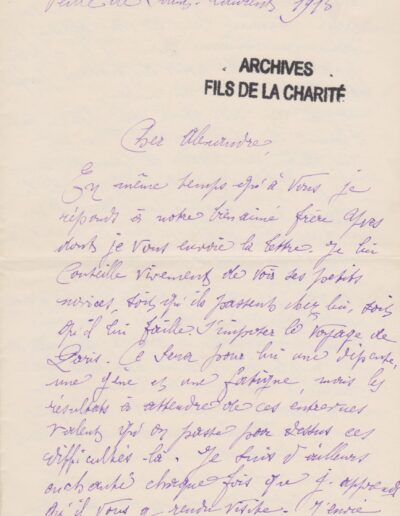 Veille de Saint-Laurent 1918
ARCHIVES
FILS DE LA CHARITÉ
Cher Alexandre,
En même temps qu'à vous je
réponds à notre bienaimé frère Yves
dont je vous envoie la lettre. Je lui
conseille vivement de voir ses petits
novices, soit qu'ils passent chez lui, soit
qu'il lui faille s'imposer le voyage de
Paris. Ce sera pour lui une dépense,
une gêne et une fatigue, mais les
résultats à attendre de ces entrevues
valent qu'on passe par dessus ces
difficultés-là. Je suis d'ailleurs
enchanté chaque fois que j'apprends
qu'il vous a rendu visite. J'envie